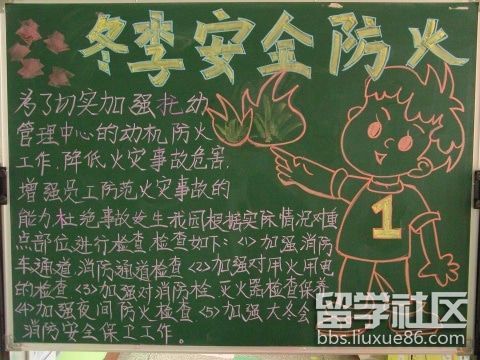 冬季安全防火
为了切实加强托幼
管理中心的动机防火
工作,降低火灾事故危害,
增强员工防范火灾事故的
能力,杜绝事故发生我园根据实际情况对重
点部位,进行检查,检查如下:<1>加强消防
车通道,消防通道检查<2>加强对用火用电
的检查<3>加强对消防栓,灭火器检查保养
<4>加强夜间防火检查<5>加强大冬会
消防安全保卫工作。
1
留学社区
bbs.liuxue86.com